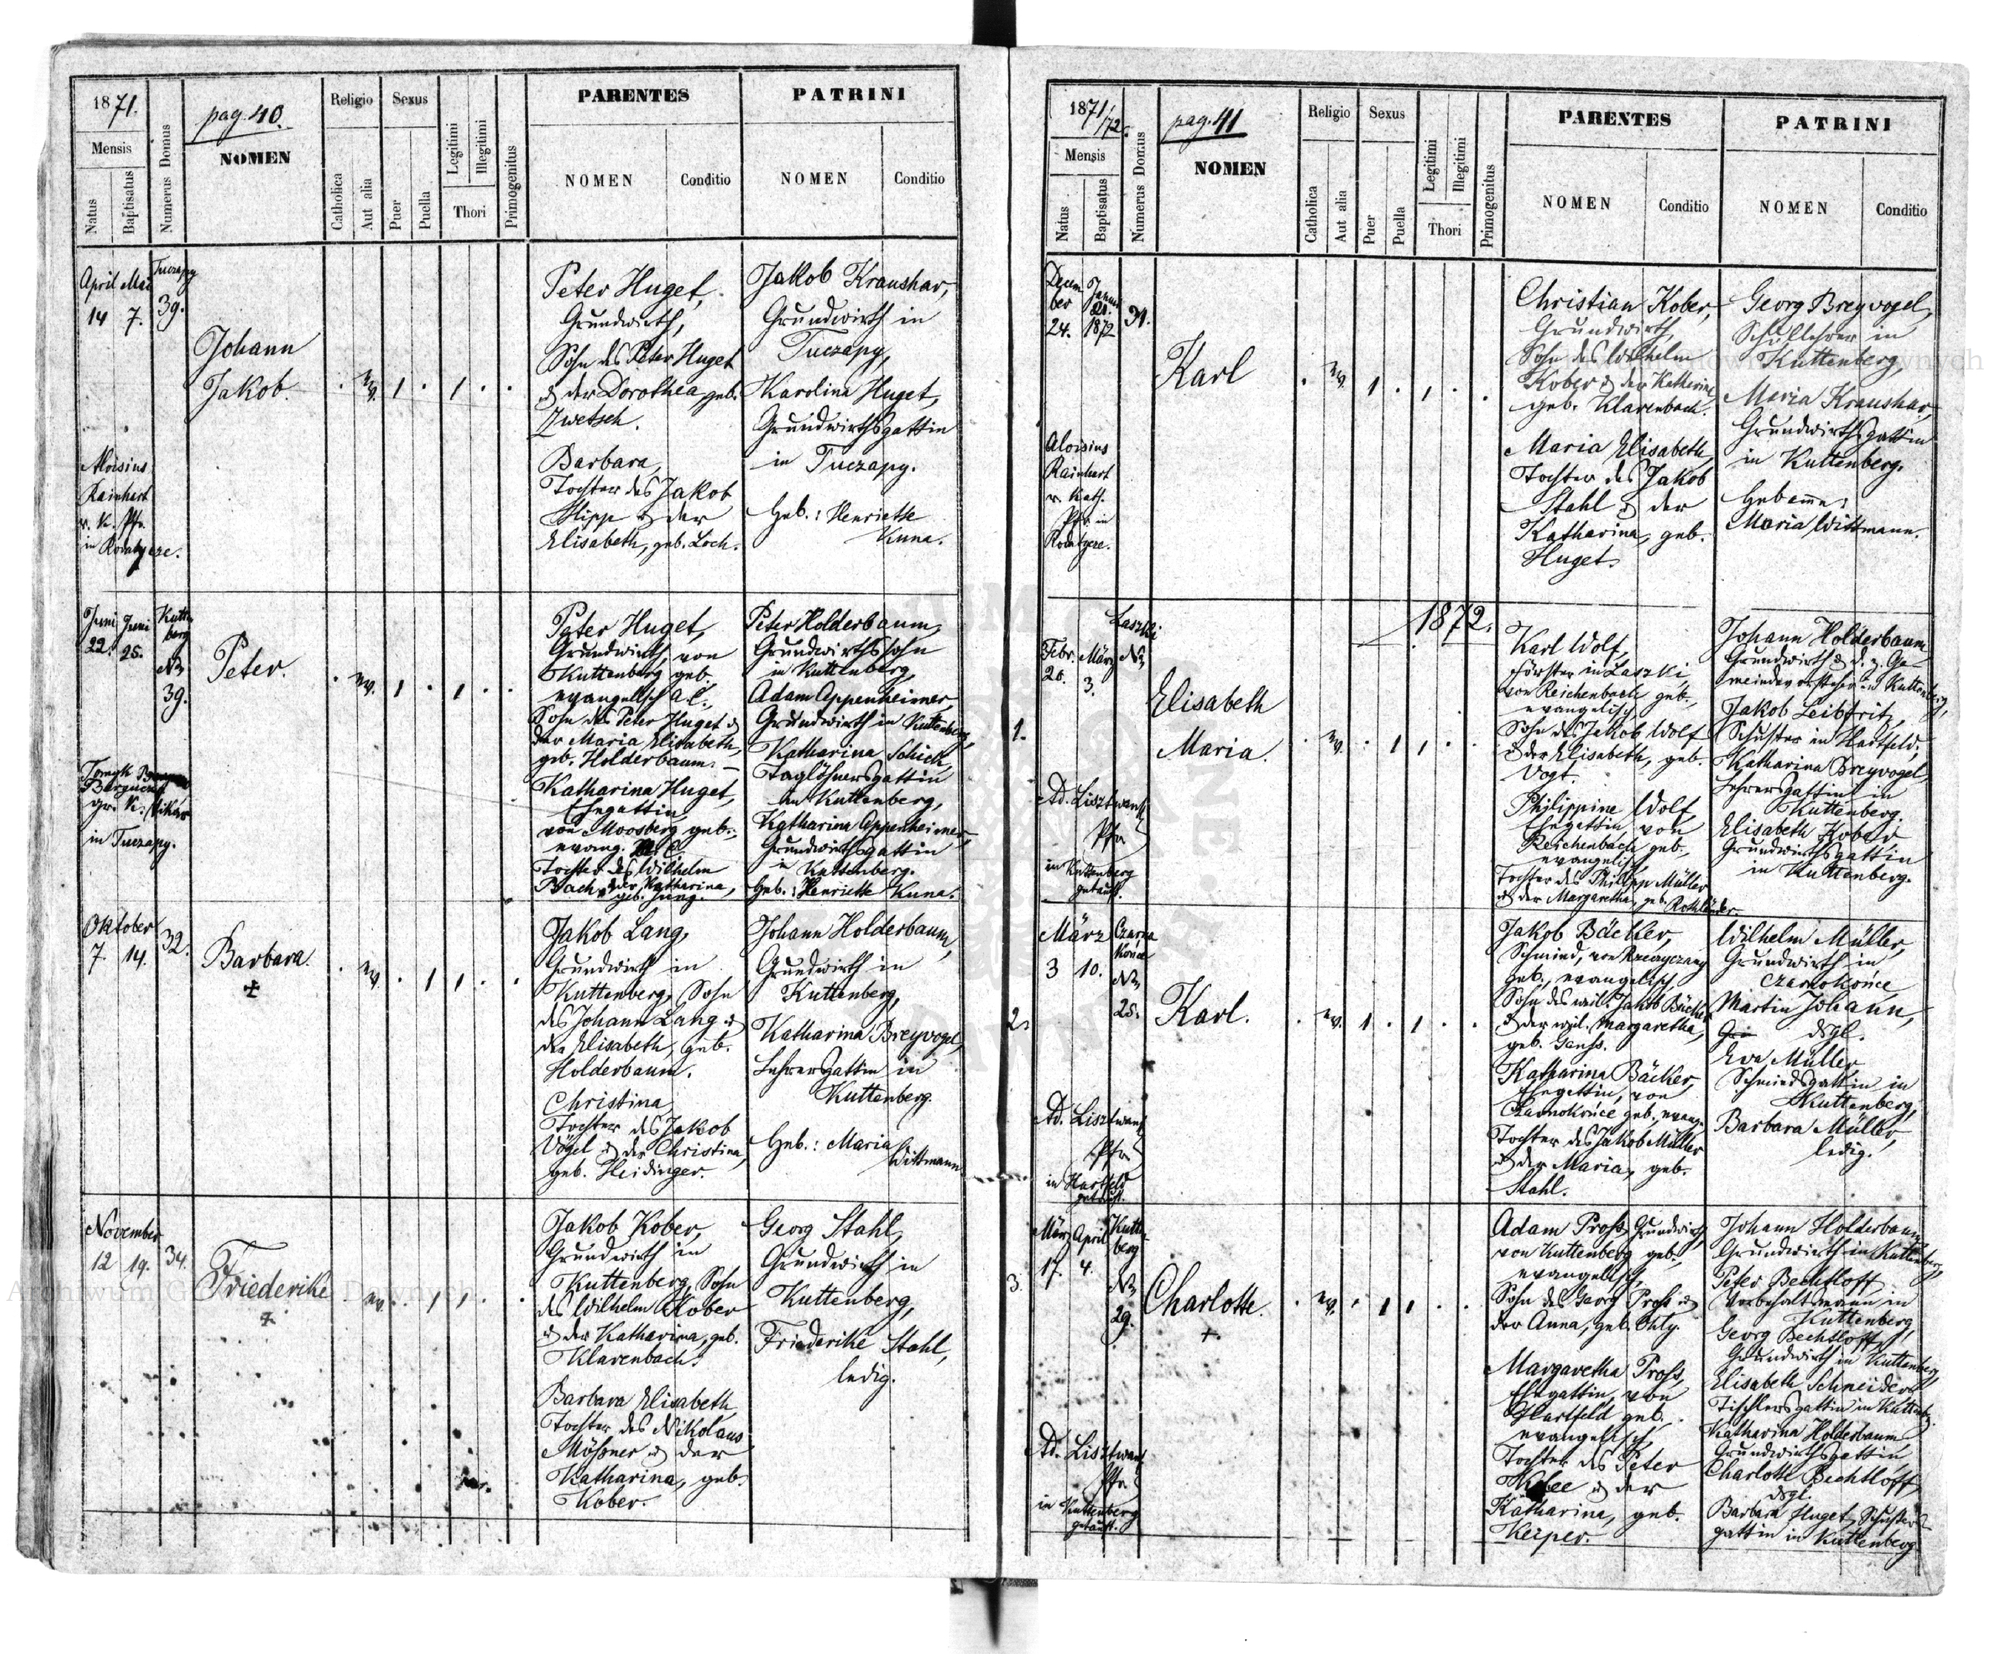 1871.
pag. 40.
Mensis
Natus
Baptisatus
Numerus Domus
NOMEN
Religio
Catholica
Aut alia
Sexus
Puer
Puella
Legitimi
Illegitimi
Thori
Primogenitus
PARENTES
NOMEN
Conditio
PATRINI
NOMEN
Conditio
April Mai Tuczapy
14 7. 39.
Johann
Jakob.
ev. 1 1
Aloisius
Rainhart
r. k. Pfr.
in
Peter Huget,
Grundwirth,
Sohn des Peter Huget
& der Dorothea, geb.
Zwetsch.
Barbara,
Tochter des Jakob
Hipp & der
Elisabeth, geb. Loch.
Jakob Kraushar,
Grundwirth in
Tuczapy,
Karolina Huget,
Grundwirthsgattin
in Tuczapy.
Geb.: Henriette
Kuna.
Juni Juni Kutten
berg
22. 25. No
39.
Peter.
ev. 1 1
gr. k. Vikar
in Tuczapy.
Peter Huget,
Grundwirth, von
Kuttenberg geb.,
evangelisch
Sohn des Peter Huget &
der Maria Elisabeth,
geb. Holderbaum. –
Katharina Huget,
Ehegattin,
von Moosberg geb.,
evang.
Tochter des Wilhelm
Bach & der Katharina,
geb. Jung.
Peter Holderbaum,
Grundwirthssohn
in Kuttenberg,
Adam Appenheimer,
Grundwirth in Kuttenberg,
Katharina Schick,
Taglöhnersgattin
in Kuttenberg,
Katharina Appenheimer,
Grundwirthsgattin
in Kuttenberg.
Geb.: Henriette Kuna.
Oktober
7. 14. 32.
Barbara.
ev. 1 1
Jakob Lang,
Grundwirth in
Kuttenberg, Sohn
des Johann Lang &
der Elisabeth, geb.
Holderbaum.
Christina
Tochter des Jakob
Vögel & der Christina,
geb. Heidinger.
Johann Holderbaum,
Grundwirth in
Kuttenberg,
Katharina Breyvogel,
Lehrersgattin in
Kuttenberg.
Geb.: Maria
Wittmann.
November
12 19. 34.
Friederike
ev. 1 1
Jakob Kober,
Grundwirth in
Kuttenberg, Sohn
des Wilhelm Kober
& der Katharina, geb.
Klarenbach.
Barbara Elisabeth,
Tochter des Nikolaus
Mößner & der
Katharina, geb.
Kober.
Georg Stahl,
Grundwirth in
Kuttenberg,
Friederike Stahl,
ledig.
1871/72.
pag. 41
Mensis
Natus
Baptisatus
Numerus Domus
NOMEN
Religio
Catholica
Aut alia
Sexus
Puer
Puella
Legitimi
Illegitimi
Thori
Primogenitus
PARENTES
NOMEN
Conditio
PATRINI
NOMEN
Conditio
Decem
ber
24. 1872
Karl
ev. 1 1
Aloisius
Rainhart
r. kath.
Pfr. in
Christian Kober,
Grundwirth,
Sohn des Wilhelm
Kober & der Katharina,
geb. Klarenbach.
Maria Elisabeth,
Tochter des Jakob
Stahl & der
Katharina, geb.
Huget.
Georg Breyvogel,
Schullehrer in
Kuttenberg,
Maria Kraushar,
Grundwirthsgattin
in Kuttenberg.
Hebamme:
Maria Wittmann.
1872.
Laszki
Febr. März No
3.
1.
Elisabeth
Maria.
ev. 1 1
Ad. Lisztwan
Pfr
in Kuttenberg
getauft.
Karl Wolf,
Förster in Laszki,
von Reichenbach geb.,
evangelisch,
Sohn des Jakob Wolf
& der Elisabeth, geb.
Vogt.
Philippine Wolf,
Ehegattin, von
Reichenbach geb.,
evangelisch,
Tochter des Philipp Müller
& der Margaretha, geb.
Johann Holderbaum
Grundwirth & d. z. Ge-
meindevorsteher in Kuttenberg,
Jakob Leibfritz,
Schuster in Hartfeld,
Katharina Breyvogel,
Lehrersgattin in
Kuttenberg.
Elisabeth Kober
Grundwirthsgattin
in Kuttenberg.
März Czarno
Końce
3 10. No
25.
2.
Karl.
ev. 1 1
Ad. Lisztwan
Pfr
in Hartfeld
getauft.
Jakob Bäcker,
Schmied, von
geb., evangelisch,
Sohn des weil. Jakob Bäcker
& der weil. Margaretha,
geb.
Katharina Bäcker,
Ehegattin, von
Czarnokońce geb., evang.
Tochter des Jakob Müller
& der Maria, geb.
Stahl.
Wilhelm Müller,
Grundwirth in
Czarnokońce
Martin Johann,
dsgl.
Eva Müller
Schmiedsgattin in
Kuttenberg,
Barbara Müller,
ledig.
März April Kutten-
berg
17. 4. No
29.
3.
Charlotte.
+
ev. 1 1
Ad. Lisztwan
Pfr
in Kuttenberg
getauft.
Adam Proß, Grundwirth,
von Kuttenberg geb.,
evangelisch,
Sohn des Georg Proß &
der Anna, geb. Ohly.
Margaretha Proß,
Ehegattin, von
Hartfeld geb.,
evangelisch,
Tochter des Peter
& der
Katharina, geb.
Keiper.
Johann Holderbaum
Grundwirth in Kuttenberg,
Peter Bechtloff,
Vorbehaltsmann in
Kuttenberg,
Georg Bechtloff,
Grundwirth in Kuttenberg,
Elisabeth Schneider
Tischlersgattin in Kuttenbg.
Katharina Holderbaum
Grundwirthsgattin,
Charlotte Bechtloff
dsgl.
Barbara Huget, Schusters-
gattin in Kuttenberg